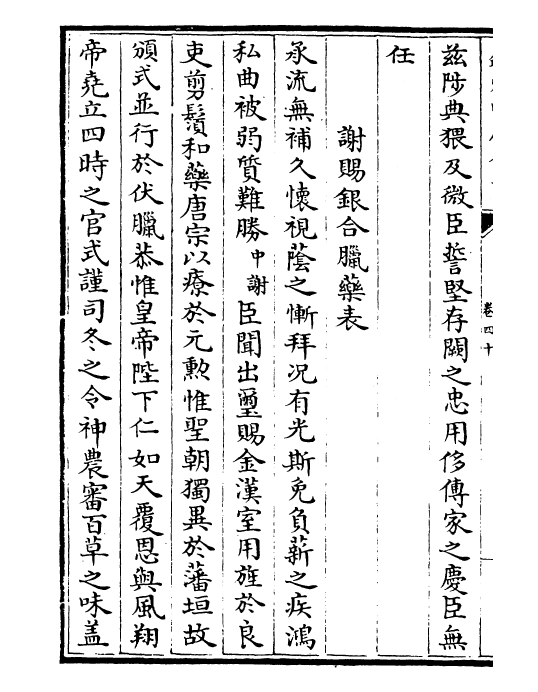 卷四十
茲陟典猥及微臣誓堅存闕之忠用侈傳家之慶臣無
任
謝賜銀合臘藥表
承流無補久懷視蔭之慚拜况有光斯免負薪之疾鴻
私曲被弱質難勝中謝臣聞出璽賜金漢室用旌於良
吏剪鬚和藥唐宗以療於元勲惟聖朝獨異於藩垣故
頒式並行於伏臘恭惟皇帝陛下仁如天覆恩與風翔
帝堯立四時之官式謹司冬之令神農審百草之味盖